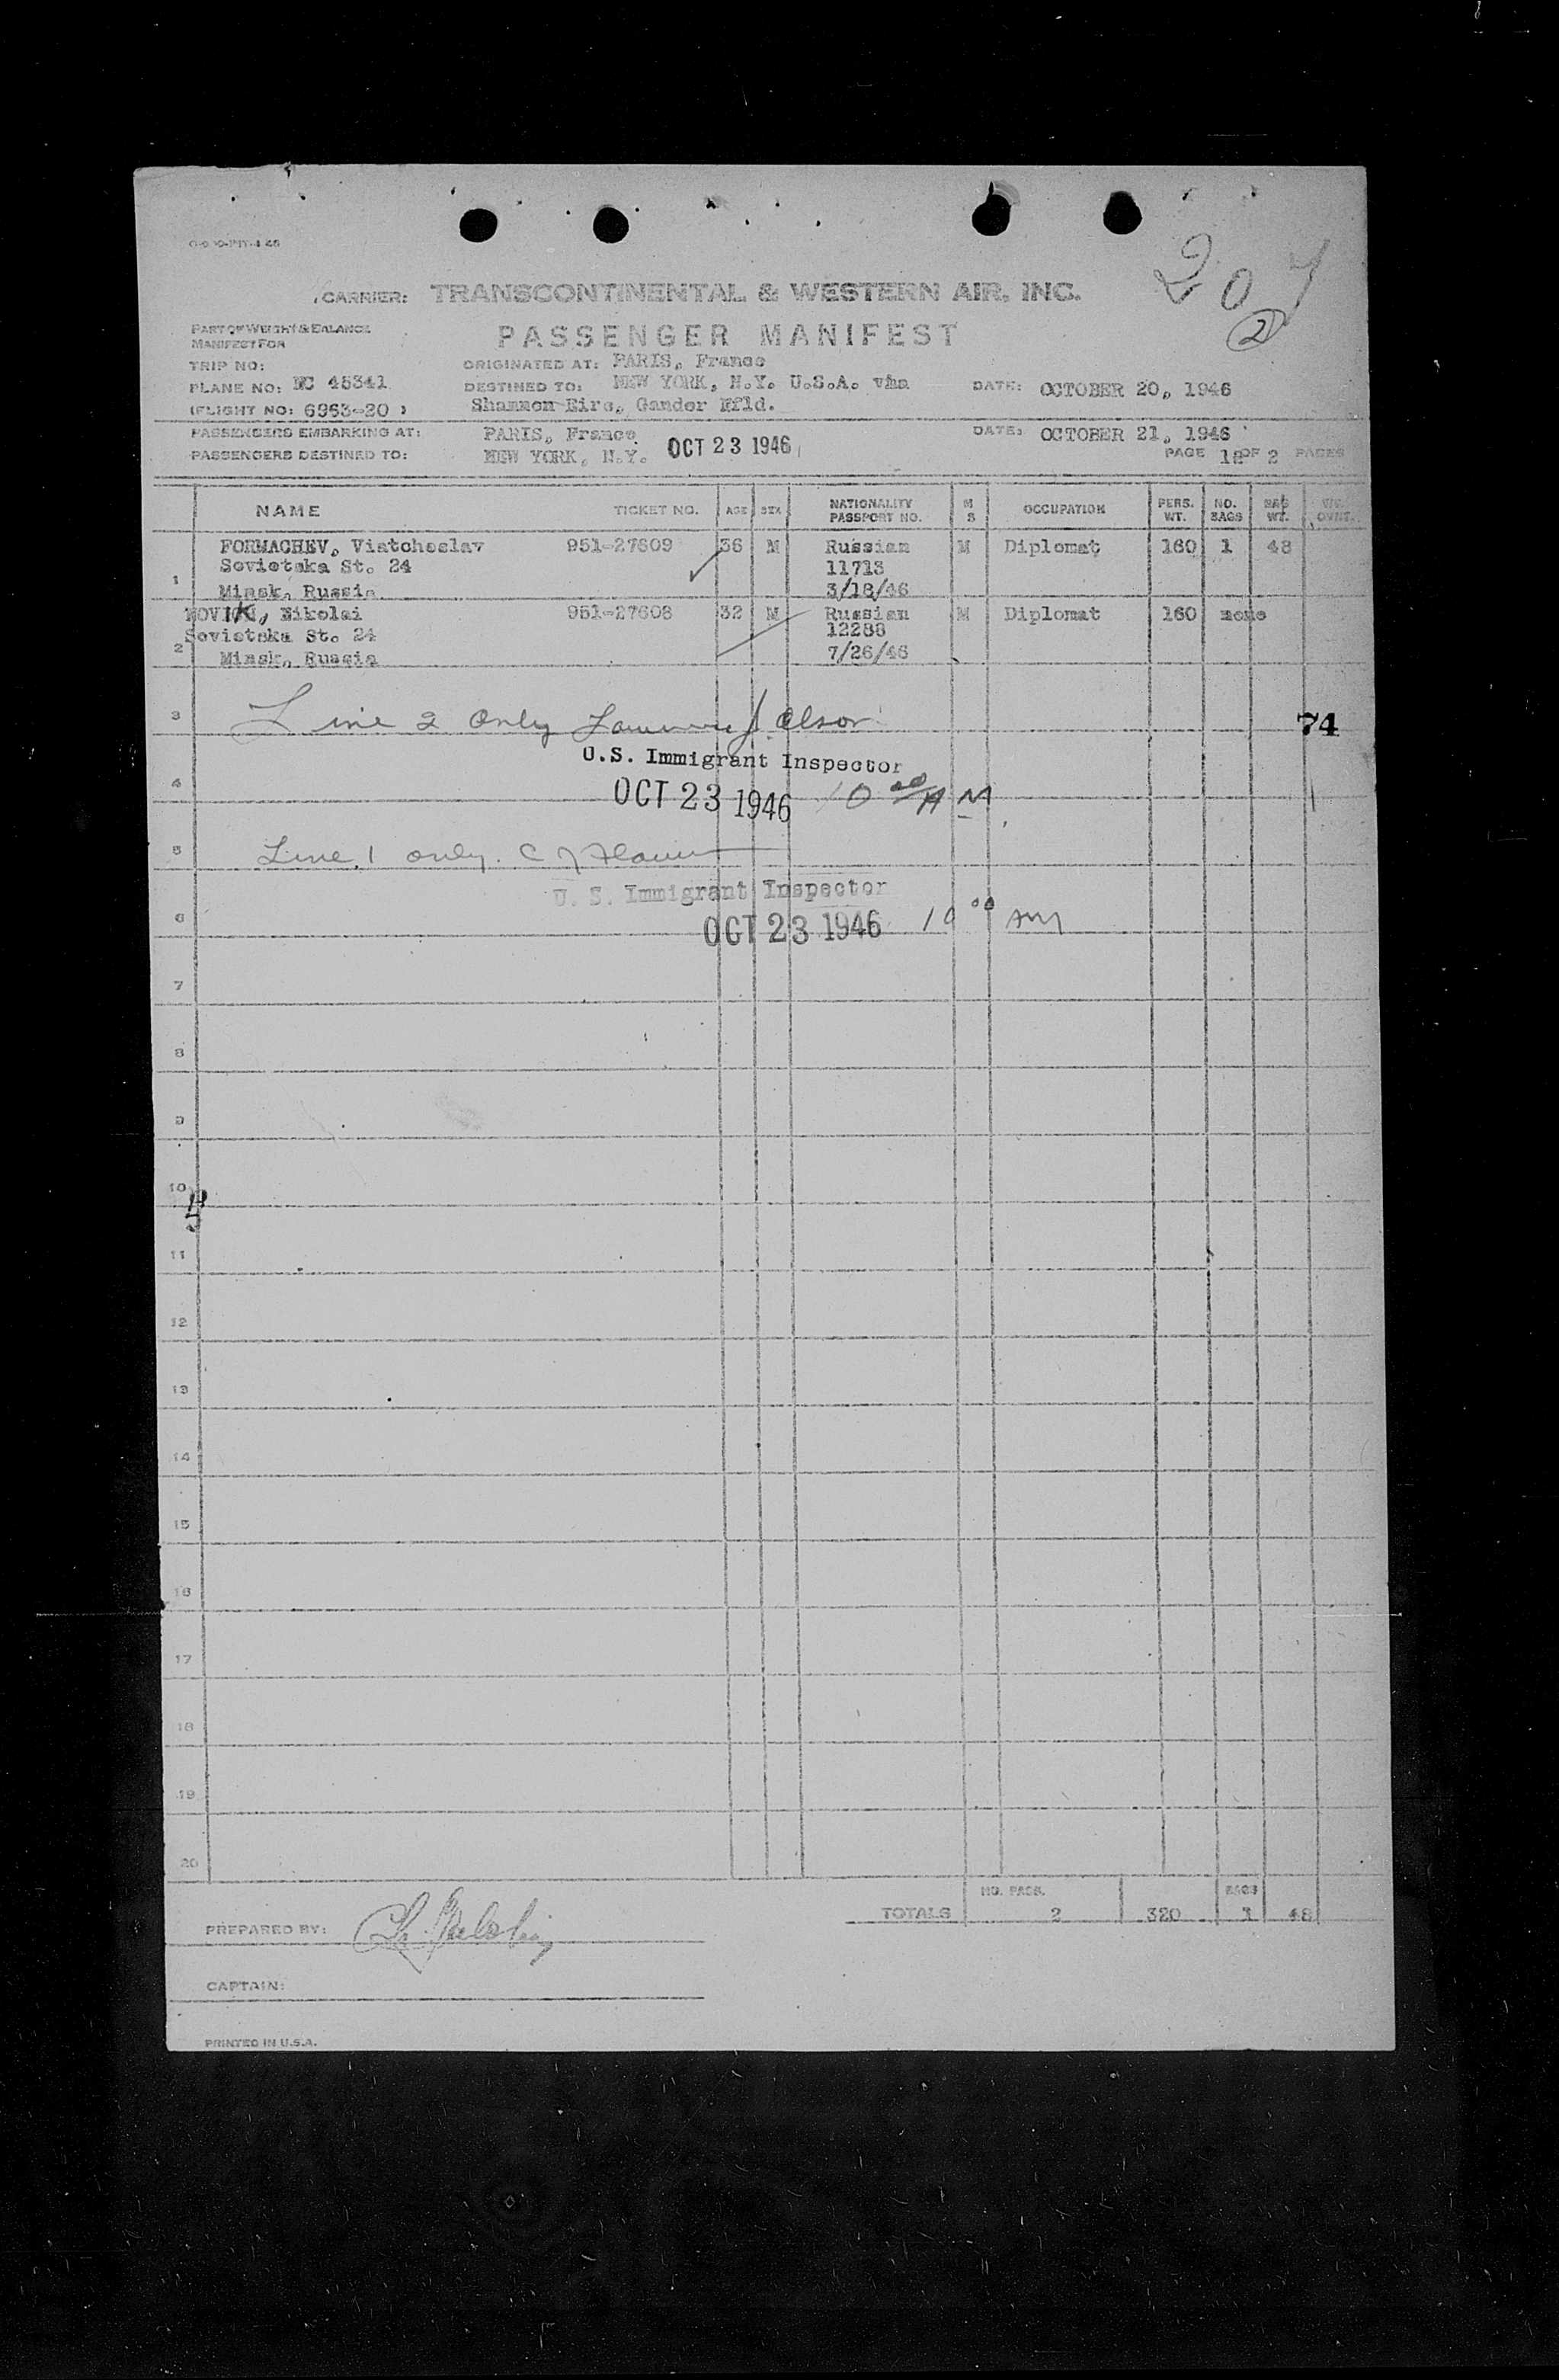 207
2
CARRIER: TRANSCONTINENTAL & WESTERN AIR, INC.
PART OF WEIGHT & BALANCE
MANIFEST FOR
PASSENGER MANIFEST
TRIP NO:
ORIGINATED AT: PARIS, France
PLANE NO: NC 45341
DESTINED TO: NEW YORK, N.Y. U.S.A. via
DATE: OCTOBER 20, 1946
(FLIGHT NO: 6963-20 )
Shannon Eire, Gander Nfld.
PASSENGERS EMBARKING AT: PARIS, France
DATE: OCTOBER 21, 1946
PASSENGERS DESTINED TO: NEW YORK, N.Y. OCT 23 1946
PAGE OF 2 PAGES
NAME TICKET NO. AGE SEX NATIONALITY PASSPORT NO. M S OCCUPATION PERS. WT. NO. BAGS BAG WT.
FORMACHEV, Viatcheslav 951-27609 36 M Russian M Diplomat 160 1 48
Sovietska St. 24 11713
1 Minsk, Russia 3/18/46
NOVIK, Nikolai 951-27608 32 M Russian M Diplomat 160 none
Sovietska St. 24 12288
2 Minsk, Russia 7/26/46
3 Line 2 only J. Olson 74
U.S. Immigrant Inspector
4 OCT 23 1946 10 00 AM
5 Line 1 only.
U. S. Immigrant Inspector
6 OCT 23 1946 10 00 AM
7
8
9
10
11
12
13
14
15
16
17
18
19
20
NO. PASS. BAGS
TOTALS 2 320 1 48
PREPARED BY:
CAPTAIN:
PRINTED IN U.S.A.